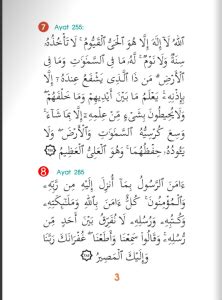 7 Ayat 255:
ٱللَّهُ لَآ إِلَٰهَ إِلَّا هُوَ ٱلْحَىُّ ٱلْقَيُّومُ ۚ لَا تَأْخُذُهُۥ
سِنَةٌ وَلَا نَوْمٌ ۚ لَّهُۥ مَا فِى ٱلسَّمَٰوَٰتِ وَمَا فِى
ٱلْأَرْضِ ۗ مَن ذَا ٱلَّذِى يَشْفَعُ عِندَهُۥٓ إِلَّا
بِإِذْنِهِۦ ۚ يَعْلَمُ مَا بَيْنَ أَيْدِيهِمْ وَمَا خَلْفَهُمْ ۖ
وَلَا يُحِيطُونَ بِشَىْءٍ مِّنْ عِلْمِهِۦٓ إِلَّا بِمَا شَآءَ ۚ
وَسِعَ كُرْسِيُّهُ ٱلسَّمَٰوَٰتِ وَٱلْأَرْضَ ۖ وَلَا
يَـُٔودُهُۥ حِفْظُهُمَا ۚ وَهُوَ ٱلْعَلِىُّ ٱلْعَظِيمُ ﴿٢٥٥﴾
8 Ayat 285
ءَامَنَ ٱلرَّسُولُ بِمَآ أُنزِلَ إِلَيْهِ مِن رَّبِّهِۦ
وَٱلْمُؤْمِنُونَ ۚ كُلٌّ ءَامَنَ بِٱللَّهِ وَمَلَٰٓئِكَتِهِۦ
وَكُتُبِهِۦ وَرُسُلِهِۦ لَا نُفَرِّقُ بَيْنَ أَحَدٍ مِّن
رُّسُلِهِۦ ۚ وَقَالُوا۟ سَمِعْنَا وَأَطَعْنَا ۖ غُفْرَانَكَ رَبَّنَا
وَإِلَيْكَ ٱلْمَصِيرُ ﴿٢٨٥﴾
3